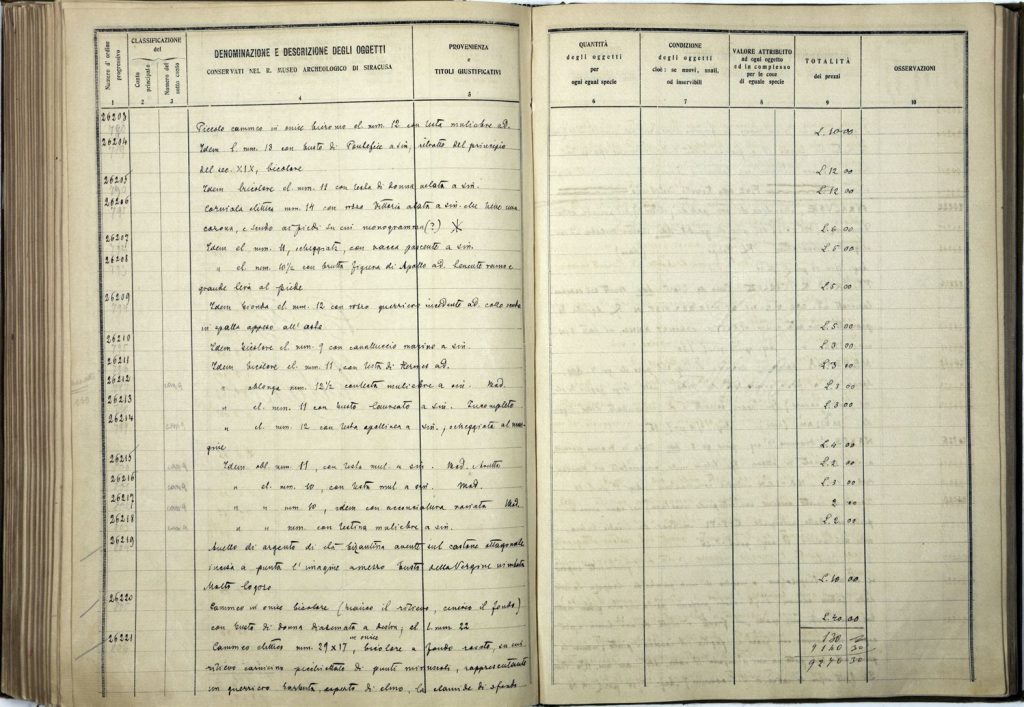 Numero d'ordine progressivo
CLASSIFICAZIONE del
Conto principale
Numero del sotto conto
DENOMINAZIONE E DESCRIZIONE DEGLI OGGETTI
CONSERVATI NEL R. MUSEO ARCHEOLOGICO DI SIRACUSA
PROVENIENZA
e
TITOLI GIUSTIFICATIVI
QUANTITÀ
degli oggetti
per
ogni egual specie
CONDIZIONE
degli oggetti
cioè: se nuovi, usati,
od inservibili
VALORE ATTRIBUITO
ad ogni oggetto
od in complesso
per le cose
di eguale specie
TOTALITÀ
dei prezzi
OSSERVAZIONI
1 2 3 4 5 6 7 8 9 10
26203
Piccolo cammeo in onice mm. 12 con testa muliebre a d. L. 10 00
26204
Idem l. mm. 13 con busto di Pontefice a sin., ritratto del principio
del sec. XIX, bicolore L. 12 00
26205
Idem bricolore el. mm. 11 con testa di donna velata a sin. L. 12 00
26206
Corniola elittica mm. 14 con rozza Vittoria alata a sin. che tiene una
corona, e scudo ai piedi su cui monogramma (?) L. 6 00
26207
Idem el. mm. 11, scheggiata, con vacca pascente a sin. L. 5 00
26208
" el. mm. 10 1/2 con brutta figura di Apollo a d. tenente ramo e
grande lira al piede L. 5 00
26209
Idem tionda el. mm. 12 con rozzo guerriero incedente a d. colla
in spalla appeso all'asta L. 5 00
26210
Idem bicolore el. mm. 9 con cavalluccio marino a sin. L. 3 00
26211
Idem bicolore el. mm. 11, con testa di Hermes a d. L. 3 00
26212
" oblonga mm. 12 1/2 con testa muliebre a sin. Mod. L. 3 00
26213
" el. mm. 11 con busto laureato a sin. Incompleto L. 3 00
26214
" el. mm. 12 con testa apollinea a sin., scheggiata al mar-
gine L. 4 00
26215
Idem obl. mm. 11, con testa mul. a sin. Mod. L. 2 00
26216
" el. mm. 10, con testa mul a sin. Mod. L. 3 00
26217
" " mm. 10, idem con acconciatura Mod. 2 00
26218
" " mm. con testina muliebre a sin. L. 2 00
26219
Anello di argento di età bizantina avente sul castone ottagonale
incisa a punta l'imagine a mezzo busto della Vergine nimbata
Molto logoro L. 10 00
26220
Cammeo in onice bicolore (bianco il rilievo, cinereo il fondo)
con busto di donna a destra; el. l. mm. 22 L. 40 00
26221
Cammeo elittico mm. 29 x 17, in onice bicolore a fondo rosato, su cui
rilievo carnicino picchiettato di punti, rappresentante
un guerriero barbuto, coperto di elmo, la clamide di sfondo
130
9140 30
9270 30